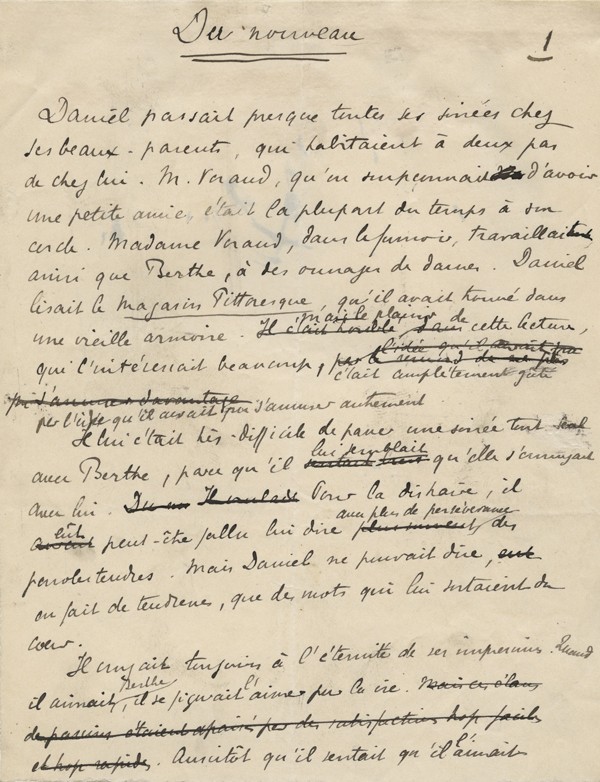 Du nouveau
1
Daniel passait presque toutes ses soirées chez
ses beaux-parents, qui habitaient à deux pas
de chez lui. M. Voraud, qu'on soupçonnait d'avoir
une petite amie, était la plupart du temps à son
cercle. Madame Voraud, dans le fumoir, travaillait
ainsi que Berthe, à des ouvrages de dames. Daniel
lisait le Magasin Pittoresque, qu'il avait trouvé dans
une vieille armoire. Il était Mais le plaisir de cette lecture,
qui l'intéressait beaucoup, par le remord de ne pas l'idée qu'il
était complètement gâté
s'amuser davantage
par l'idée qu'il aurait pu s'amuser autrement
Il lui était très-difficile de passer une soirée tout seul
avec Berthe, parce qu'il lui semblait qu'elle s'ennuyait
avec lui. Pour la distraire, il
eût avait peut-être fallu lui dire avec plus de persévérance plus souvent des
paroles tendres. Mais Daniel ne pouvait dire,
en fait de tendresses, que des mots qui lui sortaient du
coeur.
Il croyait toujours à l'éternité de ses impressions. Quand
il aimait Berthe, il se figurait l'aimer pour la vie. Mais ces élans
de passion étaient apaisés par des satisfactions trop faciles
et trop rapides. Aussitôt qu'il sentait qu'il l'aimait